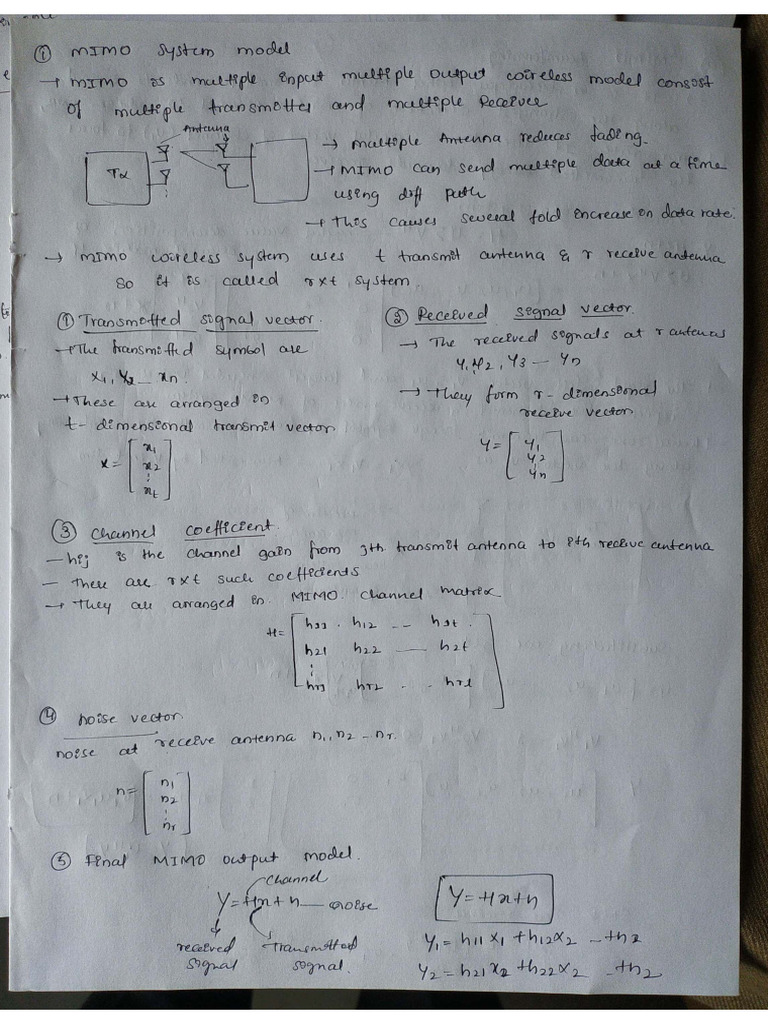 ① MIMO System model
→ MIMO is multiple input multiple output wireless model consist
of multiple transmitter and multiple Receiver
Antenna
Tx
→ multiple Antenna reduces fading.
→ MIMO can send multiple data at a time
using diff path
→ This causes several fold increase in data rate.
→ MIMO wireless system uses t transmit antenna & r receive antenna
so it is called rxt system.
① Transmitted signal vector.
→ The transmitted symbol are
x₁, x₂ -- xn.
→ These are arranged in
t- dimensional transmit vector
x = [x₁
x₂
⋮
xt]
② Received signal vector.
→ The received signals at r antennas
y₁, y₂, y₃ --- yn
→ They form r- dimensional
receive vector
y = [y₁
y₂
⋮
yn]
③ Channel coefficient.
- hij is the channel gain from jth transmit antenna to ith receive antenna
- There are rxt such coefficients
→ They are arranged in MIMO channel matrix
H = [h11 . h12 -- h1t.
h21 h22 --- h2t
⋮
hr1 hr2 . . hrt]
④ noise vector
noise at receive antenna n₁, n₂ -- nr.
n = [n₁
n₂
⋮
nr]
⑤ Final MIMO output model.
channel
Y = Hx + n — noise
received
signal
transmitted
signal.
Y = Hx + n
y₁ = h11 x₁ + h12 x₂ -- + n₁
y₂ = h21 x₂ + h22 x₂ -- + n₂